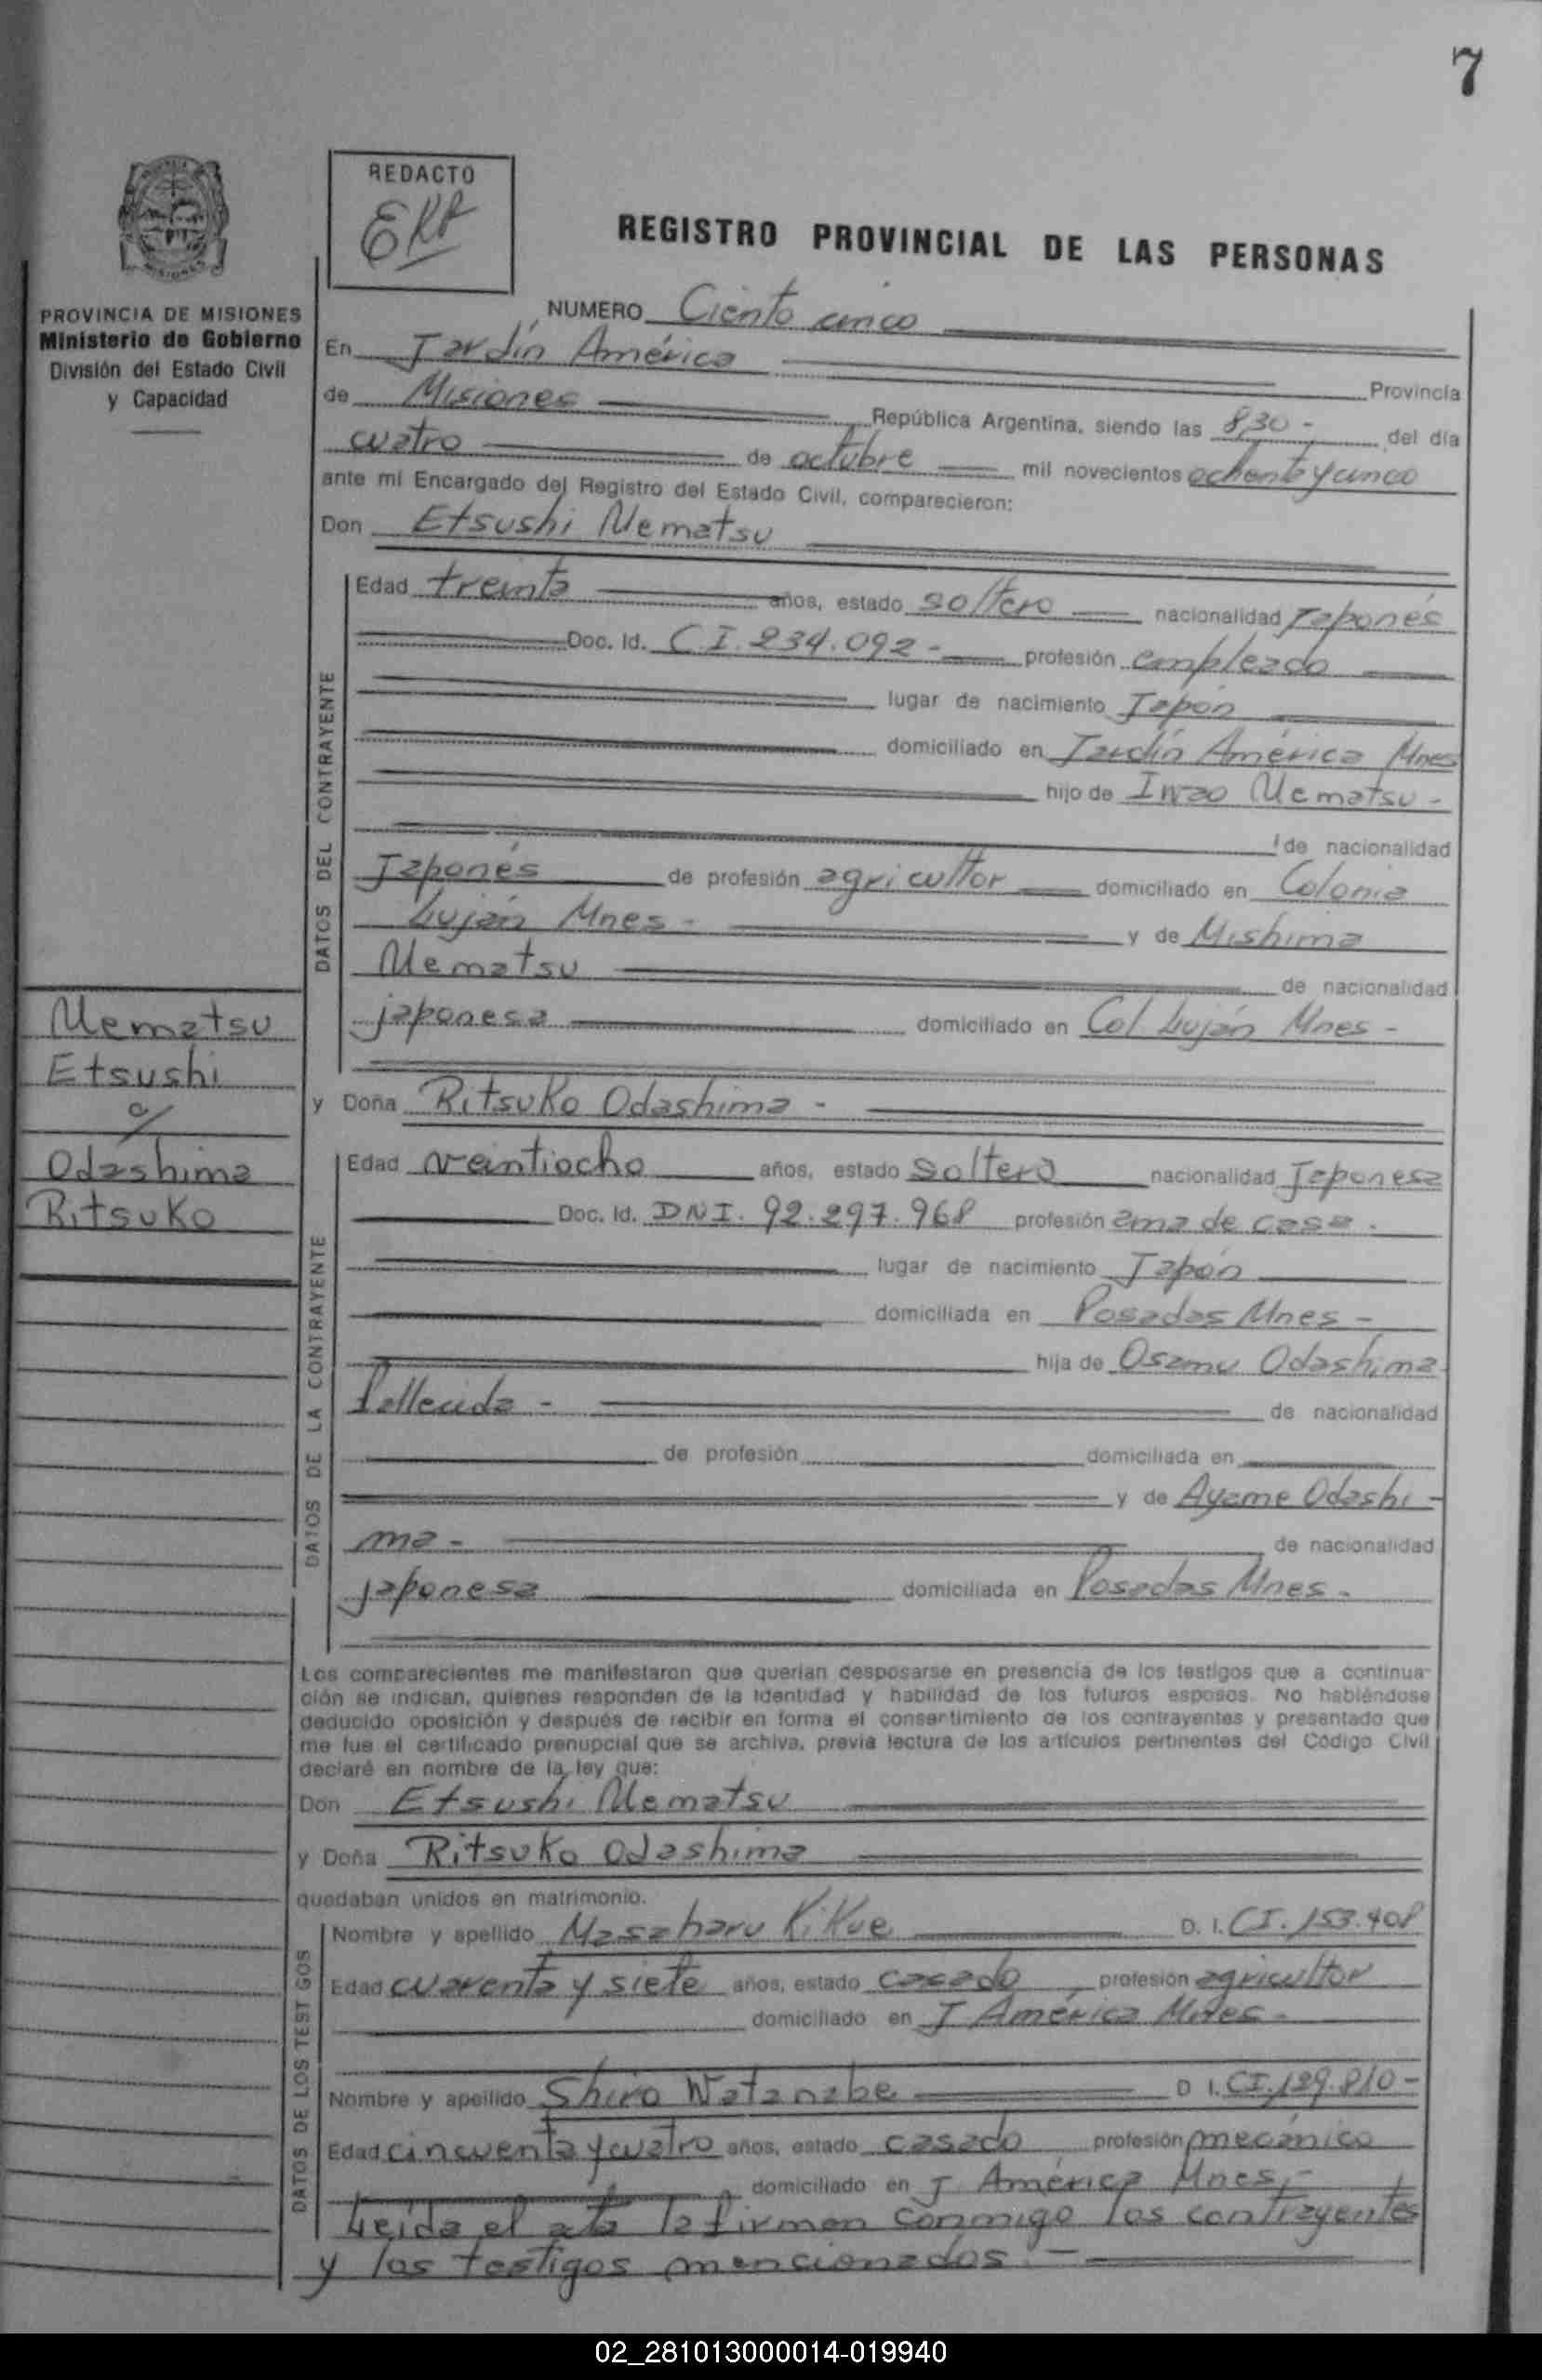 7
REDACTO
EKA
REGISTRO PROVINCIAL DE LAS PERSONAS
PROVINCIA DE MISIONES
Ministerio de Gobierno
División del Estado Civil
y Capacidad
NUMERO Ciento cinco
En Jardín América Provincia
de Misiones República Argentina, siendo las 8,30 - del día
cuatro de octubre mil novecientos ochenta y cinco
ante mi Encargado del Registro del Estado Civil, comparecieron:
Don Etsushi Uematsu
DATOS DEL CONTRAYENTE
Edad treinta años, estado soltero nacionalidad Japonés
Doc. Id. C.I. 234.092 - profesión empleado
lugar de nacimiento Japón
domiciliado en Jardín América Mnes
hijo de Iwao Uematsu -
de nacionalidad
Japonés de profesión agricultor domiciliado en Colonia
Luján Mnes - y de Mishima
Uematsu de nacionalidad
japonesa domiciliado en Col Luján Mnes -
Uematsu
Etsushi
c/
Odashima
Ritsuko
y Doña Ritsuko Odashima -
DATOS DE LA CONTRAYENTE
Edad veintiocho años, estado soltera nacionalidad Japonesa
Doc. Id. DNI. 92.297.968 profesión ama de casa .
lugar de nacimiento Japón
domiciliada en Posadas Mnes -
hija de Osamu Odashima
fallecida - de nacionalidad
de profesión domiciliada en
y de Ayame Odashi -
ma - de nacionalidad
japonesa domiciliada en Posadas Mnes -
Los comparecientes me manifestaron que querían desposarse en presencia de los testigos que a continua-
ción se indican, quienes responden de la identidad y habilidad de los futuros esposos. No habiéndose
deducido oposición y después de recibir en forma el consentimiento de los contrayentes y presentado que
me fue el certificado prenupcial que se archiva, previa lectura de los artículos pertinentes del Código Civil
declaré en nombre de la ley que:
Don Etsushi Uematsu
y Doña Ritsuko Odashima
quedaban unidos en matrimonio.
DATOS DE LOS TESTIGOS
Nombre y apellido Masaharu Kikue D. I. CI. 153.408
Edad cuarenta y siete años, estado casado profesión agricultor
domiciliado en J América Mnes -
Nombre y apellido Shiro Watanabe D. I. CI. 129.810 -
Edad cincuenta y cuatro años, estado casado profesión mecánico
domiciliado en J. América Mnes, -
Leída el acta la firman conmigo los contrayentes
y los testigos mencionados. -
02_281013000014-019940